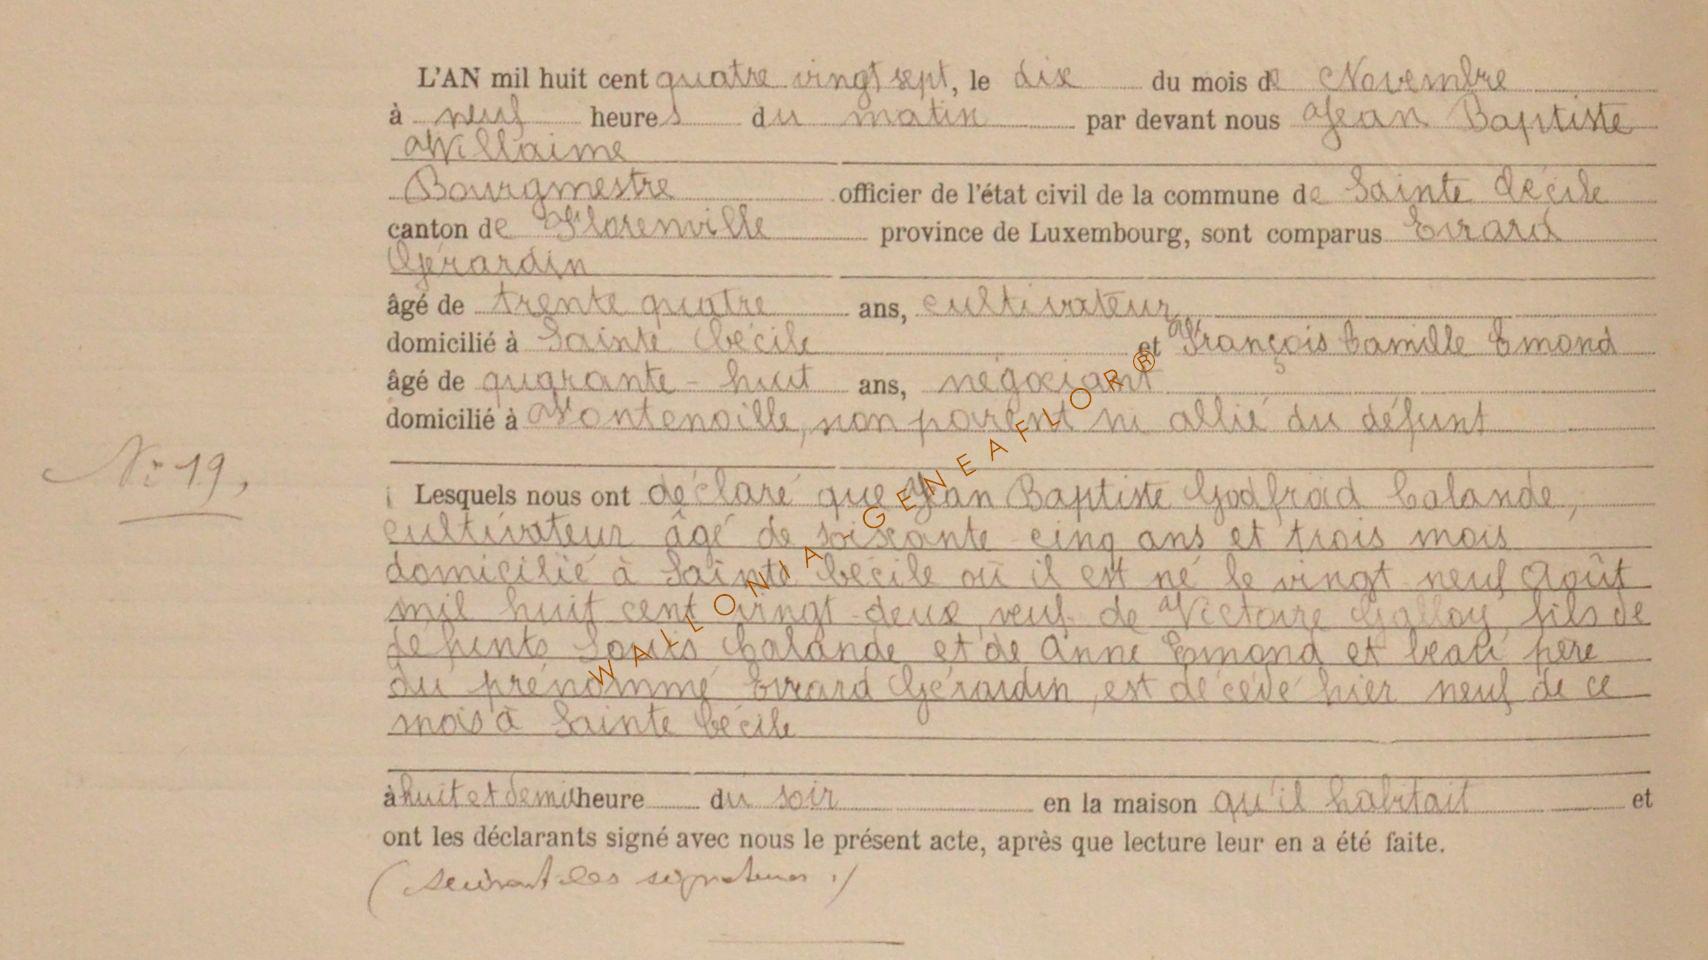 L'AN mil huit cent quatre vingt sept, le dix du mois de Novembre
à neuf heures du matin par devant nous Jean Baptiste
Willaime
Bourgmestre officier de l'état civil de la commune de Sainte Cécile
canton de Florenville province de Luxembourg, sont comparus Evrard
Gérardin
âgé de trente quatre ans, cultivateur
domicilié à Sainte Cécile et François Camille Emond
âgé de quarante-huit ans, négociant
domicilié à Fontenoille, non parent ni allié du défunt
N° 19,
Lesquels nous ont déclaré que Jean Baptiste Godfroid Calande,
cultivateur âgé de soixante cinq ans et trois mois
domicilié à Sainte Cécile où il est né le vingt neuf Août
mil huit cent vingt-deux, veuf de Victoire Galloy fils de
défunts Louis Calande et de Anne Emond et beau père
du prénommé Evrard Gérardin, est décédé hier neuf de ce
mois à Sainte Cécile
à huit et demie heure du soir en la maison qu'il habitait et
ont les déclarants signé avec nous le présent acte, après que lecture leur en a été faite.
(suivant les signatures.)
WALLONIA GENEAFLOR®